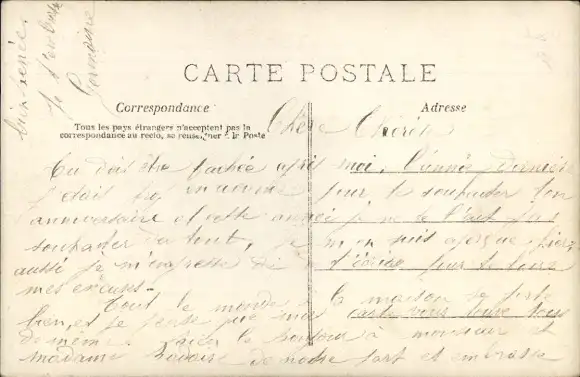 CARTE POSTALE
Correspondance
Adresse
Tous les pays étrangers n'acceptent pas la
correspondance au recto, se renseigner à la Poste
Chère Chérie
Tu dois être fachée après moi, l'année dernière
j'étais en avance pour te souhaiter ton
anniversaire et cette année je ne te l'ait pas
souhaiter du tout, je m'en suis aperçue hier
aussi je m'empresse de t'écrire pour te faire
mes excuses.
Tout le monde à la maison se porte
bien, et je pense que ma carte vous trouve tous
de même. le bonjour à monsieur et
madame de notre part et embrasse
Je t'embrasse
Germaine